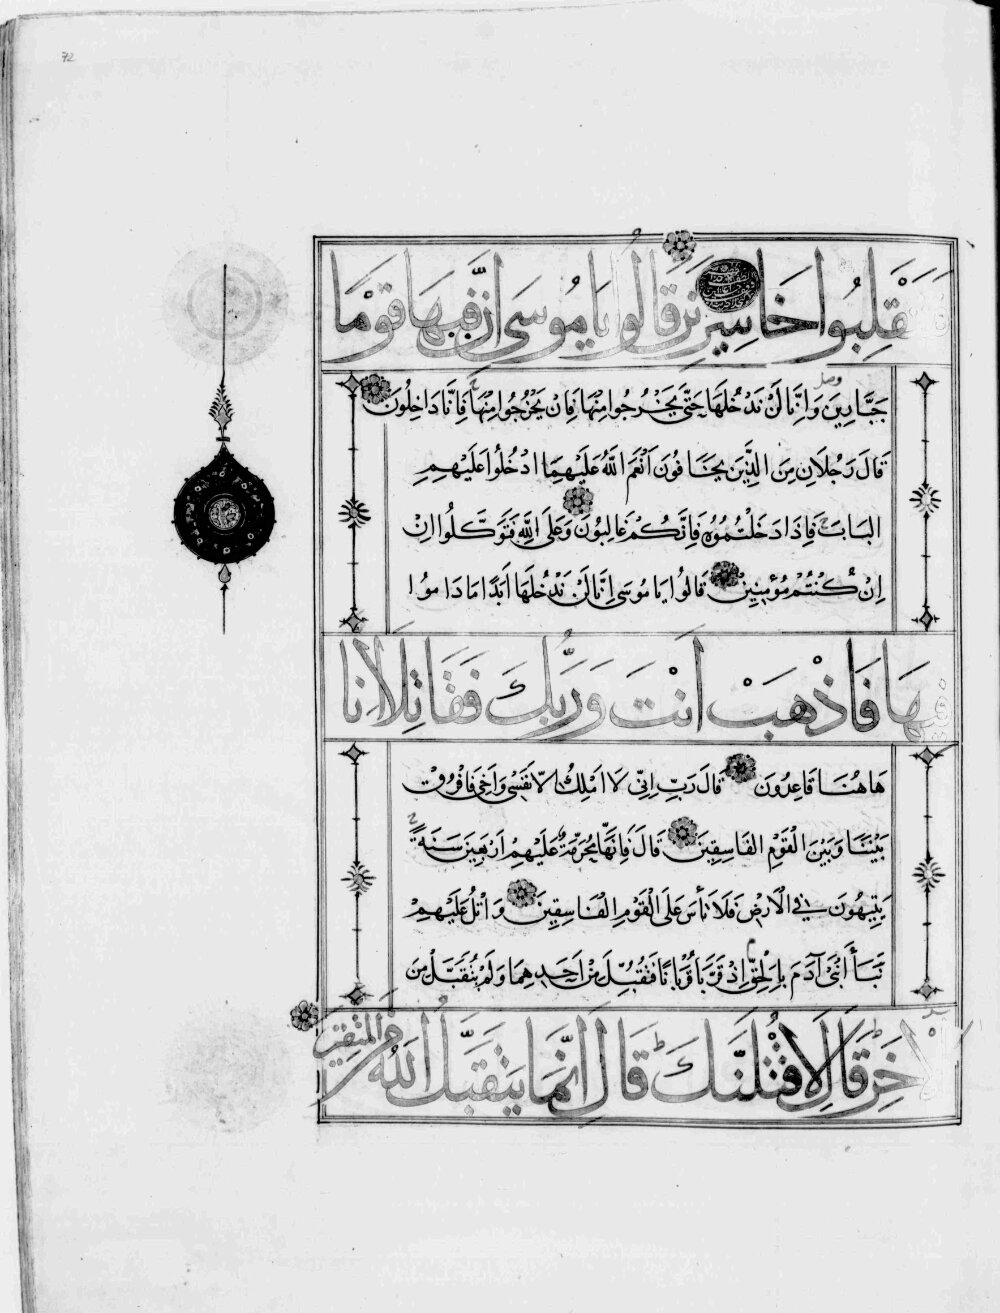 72
فَتَنْقَلِبُوا خَاسِرِينَ قَالُوا يَا مُوسَى اِنَّ فِيهَا قَوْمًا
جَبَّارِينَ وَاِنَّا لَنْ نَدْخُلَهَا حَتَّى يَخْرُجُوا مِنْهَا فَاِنْ يَخْرُجُوا مِنْهَا فَاِنَّا دَاخِلُونَ
قَالَ رَجُلَانِ مِنَ الَّذِينَ يَخَافُونَ اَنْعَمَ اللّٰهُ عَلَيْهِمَا ادْخُلُوا عَلَيْهِمِ
البَابَ فَاِذَا دَخَلْتُمُوهُ فَاِنَّكُمْ غَالِبُونَ وَعَلَى اللّٰهِ فَتَوَكَّلُوا اِنْ
اِنْ كُنْتُمْ مُؤْمِنِينَ قَالُوا يَا مُوسَى اِنَّا لَنْ نَدْخُلَهَا اَبَدًا مَا دَامُوا
فِيهَا فَاذْهَبْ اَنْتَ وَرَبُّكَ فَقَاتِلَا اِنَّا
هَاهُنَا قَاعِدُونَ قَالَ رَبِّ اِنِّى لَا اَمْلِكُ اِلَّا نَفْسِى وَاَخِى فَافْرُقْ
بَيْنَنَا وَبَيْنَ الْقَوْمِ الفَاسِقِينَ قَالَ فَاِنَّهَا مُحَرَّمَةٌ عَلَيْهِمْ اَرْبَعِينَ سَنَةً
يَتِيهُونَ فِى الْاَرْضِ فَلَا تَأْسَ عَلَى الْقَوْمِ الْفَاسِقِينَ وَاتْلُ عَلَيْهِمْ
نَبَأَ ابْنَىْ آدَمَ بِالْحَقِّ اِذْ قَرَّبَا قُرْبَانًا فَتُقُبِّلَ مِنْ اَحَدِهِمَا وَلَمْ يُتَقَبَّلْ مِنَ
الْاٰخَرِ قَالَ لَاَقْتُلَنَّكَ قَالَ اِنَّمَا يَتَقَبَّلُ اللّٰهُ مِنَ المُتَّقِينَ